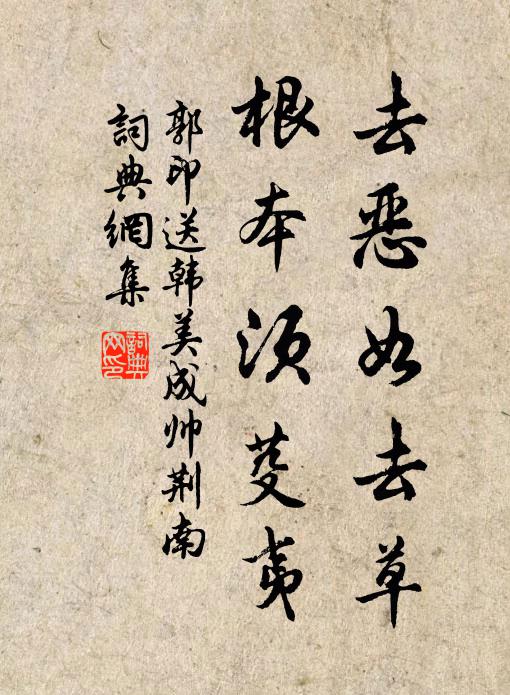 去恶如去草
根本须芟夷
郭印送韩美成帅荆南
詞典網集
詞典
网印